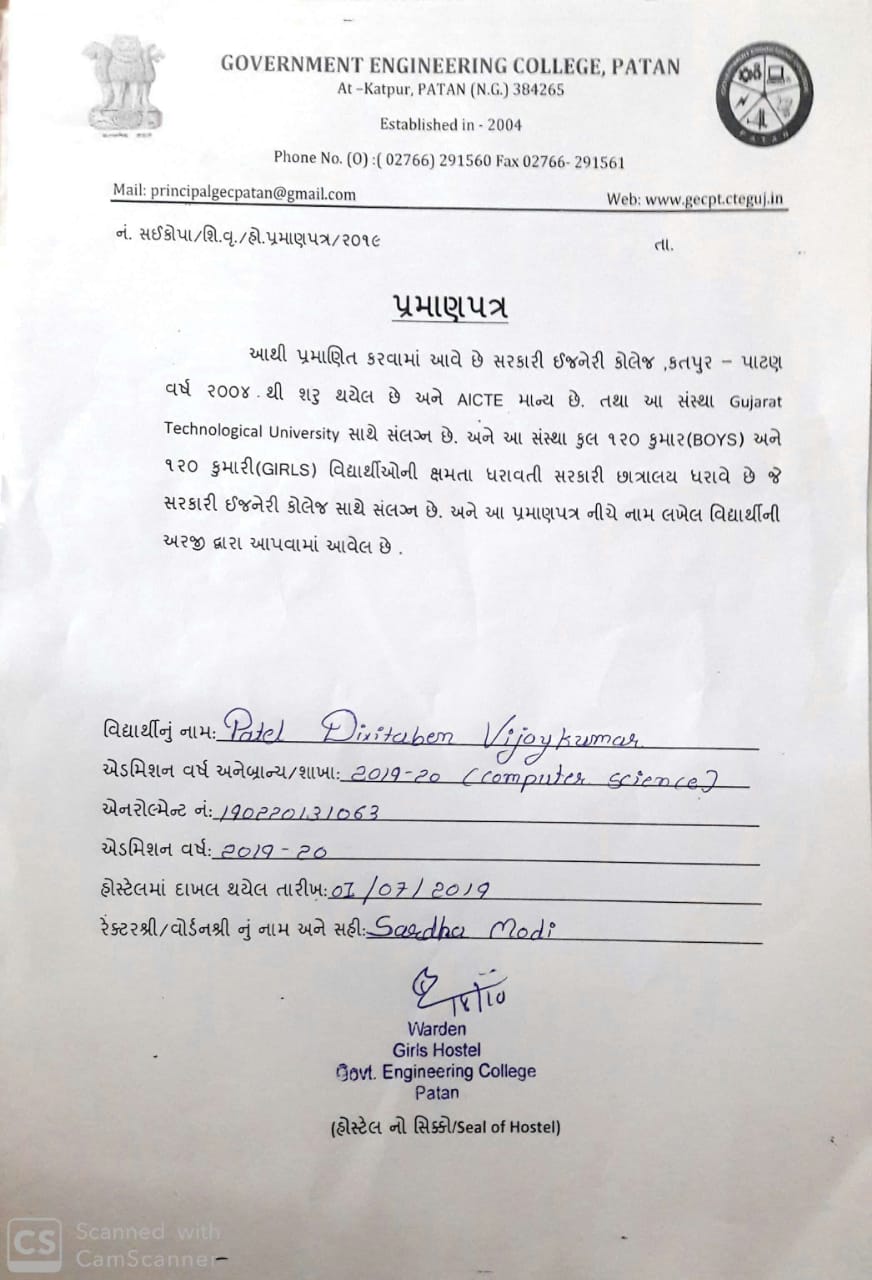 GOVERNMENT ENGINEERING COLLEGE, PATAN
At –Katpur, PATAN (N.G.) 384265
Established in - 2004
Phone No. (O) :( 02766) 291560 Fax 02766- 291561
Mail: principalgecpatan@gmail.com Web: www.gecpt.cteguj.in
PATAN
નં. સઈકોપા/શિ.વૃ./હો.પ્રમાણપત્ર/૨૦૧૯ તા.
પ્રમાણપત્ર
આથી પ્રમાણિત કરવામાં આવે છે સરકારી ઈજનેરી કોલેજ ,કતપુર – પાટણ
વર્ષ ૨૦૦૪ . થી શરુ થયેલ છે અને AICTE માન્ય છે. તથા આ સંસ્થા Gujarat
Technological University સાથે સંલગ્ન છે. અને આ સંસ્થા કુલ ૧૨૦ કુમાર(BOYS) અને
૧૨૦ કુમારી(GIRLS) વિદ્યાર્થીઓની ક્ષમતા ધરાવતી સરકારી છાત્રાલય ધરાવે છે જે
સરકારી ઈજનેરી કોલેજ સાથે સંલગ્ન છે. અને આ પ્રમાણપત્ર નીચે નામ લખેલ વિદ્યાર્થીની
અરજી દ્વારા આપવામાં આવેલ છે .
વિદ્યાર્થીનું નામ: Patel Dixitaben Vijaykumar
એડમિશન વર્ષ અનેબ્રાન્ચ/શાખા: 2019-20 (computer science)
એનરોલ્મેન્ટ નં: 190220131063
એડમિશન વર્ષ: 2019-20
હોસ્ટેલમાં દાખલ થયેલ તારીખ: 01/07/2019
રેક્ટરશ્રી/વોર્ડનશ્રી નું નામ અને સહી: Sardha Modi
18/10
Warden
Girls Hostel
Govt. Engineering College
Patan
(હોસ્ટેલ નો સિક્કો/Seal of Hostel)
CS Scanned with
CamScanner